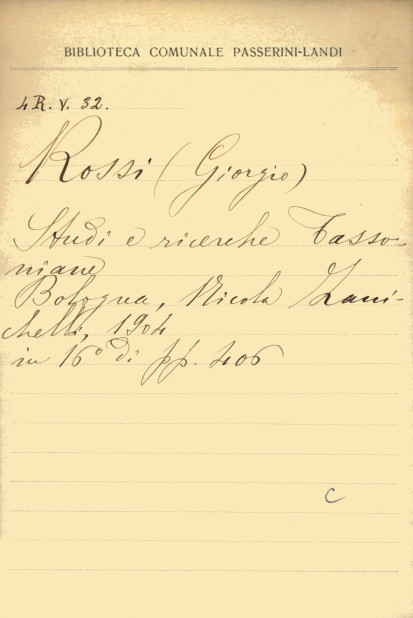 BIBLIOTECA COMUNALE PASSERINI-LANDI
4 R. V. 32.
Rossi (Giorgio)
Studi e ricerche Tasso-
niane
Bologna, Nicola Zani-
chelli, 1904
in 16° di pp. 406
C